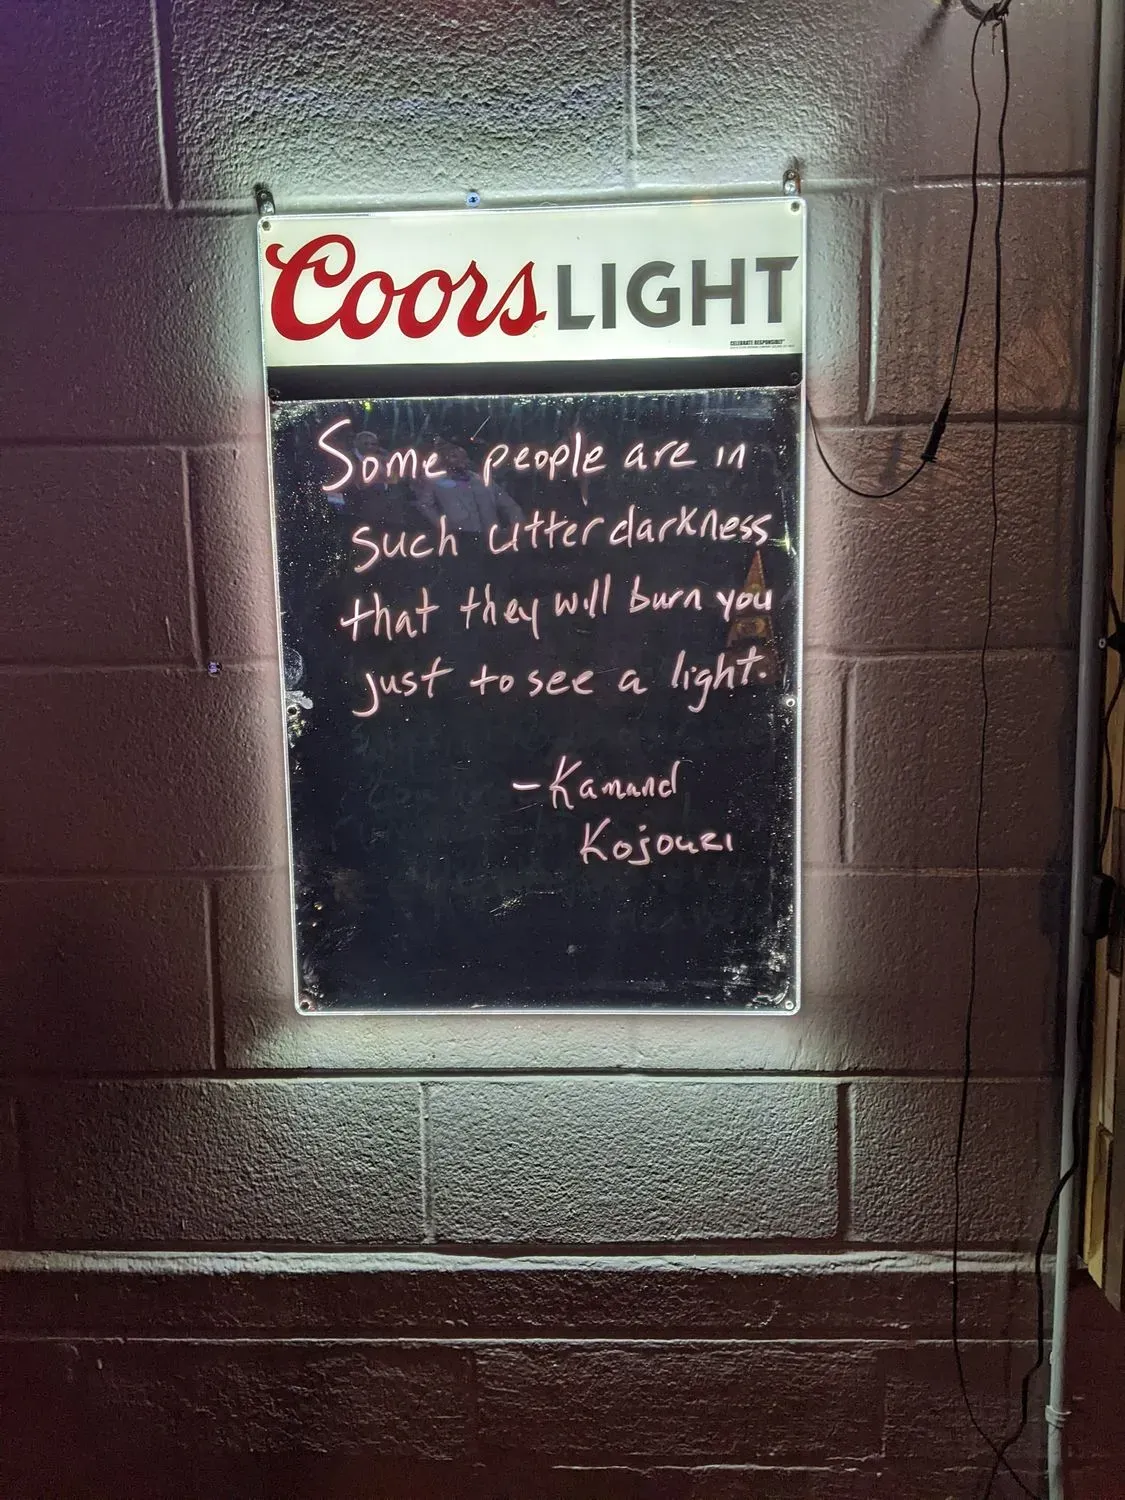 Coors LIGHT
CELEBRATE RESPONSIBLY®
Some people are in
such utter darkness
that they will burn you
just to see a light.
- Kamand
Kojouri